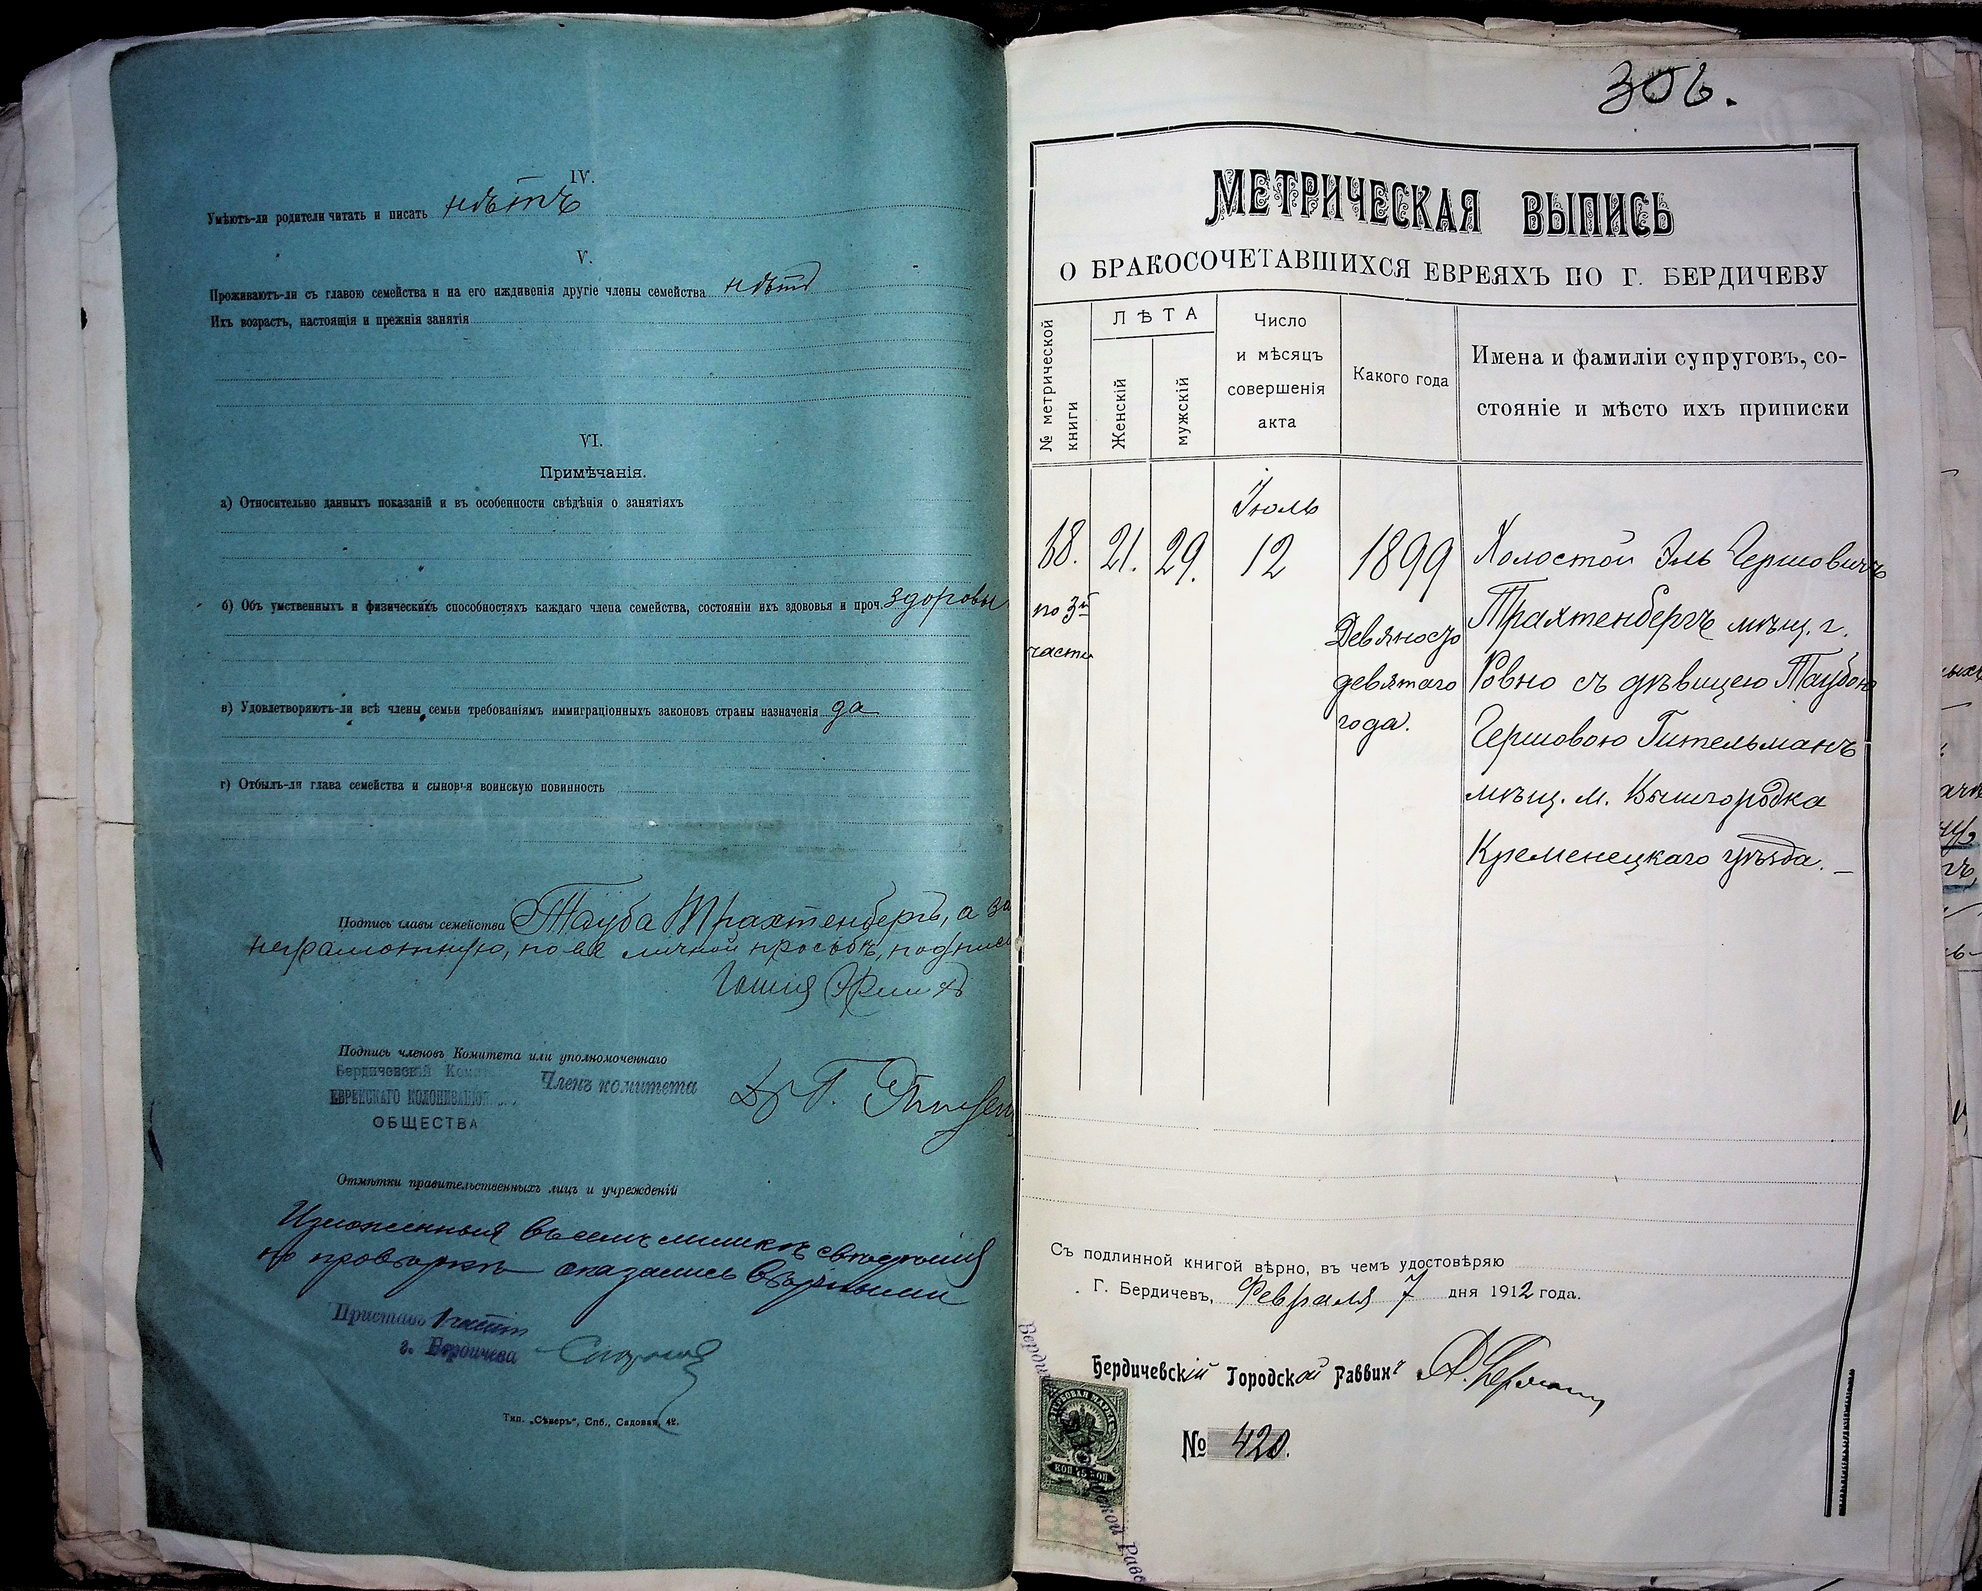 IV.
Умѣютъ-ли родители читать и писать нѣтъ
V.
Проживаютъ-ли съ главою семейства и на его иждивенія другіе члены семейства нѣтъ
Ихъ возрастъ, настоящія и прежнія занятія
VI.
Примѣчанія.
а) Относительно данныхъ показаній и въ особенности свѣдѣнія о занятіяхъ
б) Объ умственныхъ и физическихъ способностяхъ каждаго члена семейства, состояніи ихъ здововья и проч. здоровы
в) Удовлетворяютъ-ли всѣ члены семьи требованіямъ иммиграціонныхъ законовъ страны назначенія да
г) Отбылъ-ли глава семейства и сыновья воинскую повинность
Подпись главы семейства Тауба Трахтенбергъ, а за
неграмотную, по ея личной просьбѣ, подписа
Подпись членовъ Комитета или уполномоченнаго
Бердичевскій Коми
ЕВРЕЙСКАГО КОЛОНИЗАЦІОН
ОБЩЕСТВА
Членъ комитета
Др Г.
Отмѣтки правительственныхъ лицъ и учрежденій
Изложенныя въ семъ листкѣ свѣдѣнія
по провѣркѣ оказались вѣрными
Приставъ 1 части
г. Бердичева
Тип. „Сѣверъ“, Спб., Садовая, 42.
306.
МЕТРИЧЕСКАЯ ВЫПИСЬ
О БРАКОСОЧЕТАВШИХСЯ ЕВРЕЯХЪ ПО Г. БЕРДИЧЕВУ
№ метрической
книги
ЛѢТА
Женскій
мужскій
Число
и мѣсяцъ
совершенія
акта
Какого года
Имена и фамиліи супруговъ, со-
стояніе и мѣсто ихъ приписки
18.
по 3й
части
21.
29.
Іюль
12
1899
Девяносто
девятаго
года.
Холостой Эль Гершовичъ
Трахтенбергъ мѣщ. г.
Ровно съ дѣвицею Таубою
Гершовою Гительманъ
мѣщ. м. Вышгородка
Кременецкаго уѣзда. –
Съ подлинной книгой вѣрно, въ чемъ удостовѣряю
Г. Бердичевъ, Февраля 7 дня 1912 года.
Бердичевскій Городской Раввинъ
№ 420.
КОП 75 КОП